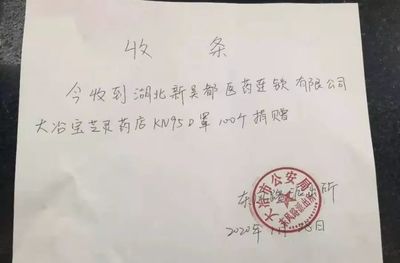 收 条
今收到湖北新吴都医药连锁有限公司
大冶宝芝灵药店KN95口罩100个捐赠
大冶市公安局
东风路派出所
2020年